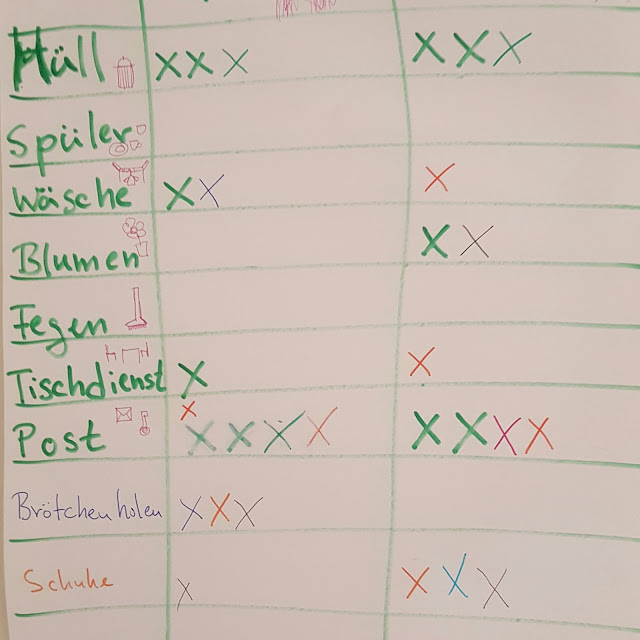 Müll X X X X X X
Spüler
Wäsche X X X
Blumen X X
Fegen
Tischdienst X X
Post X X X X X X X X X
Brötchen holen X X X
Schuhe X X X X